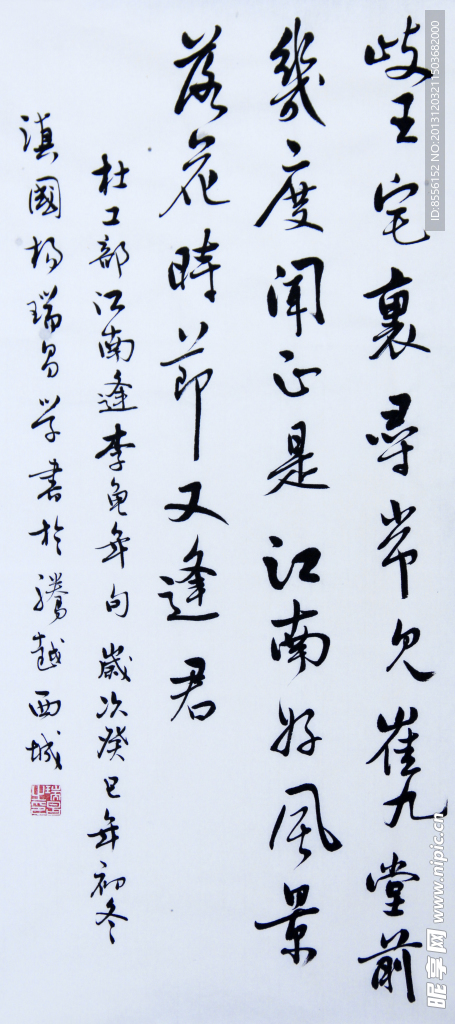 歧王宅裏尋常見崔九堂前
幾度聞正是江南好風景
落花時節又逢君
杜工部江南逢李龜年句 歲次癸巳年初冬
滇國楊瑞昌学書於騰越西城
ID:8556152 NO:20131203211503682000
昵享网 www.nipic.cn